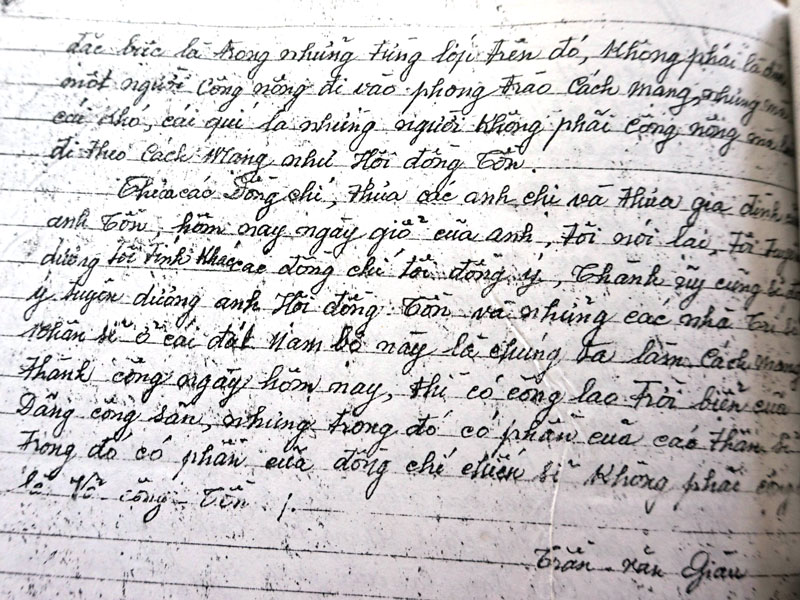 đặc biệt là trong những từng lớp trên đó, Không phải là
một người Công nông đi vào phong trào Cách mạng, nhưng mà
cái khó, cái quí là những người Không phải Công nông mà
đi theo Cách Mạng như Hội đồng Tồn.
Thưa các Đồng chí, thưa các anh chị và thưa gia đình
anh Tồn, hôm nay ngày giổ của anh, Tôi nói lại, Tôi
dương tôi tính Khác các đồng chí tôi đồng ý, Thành ủy cũng
ý tuyên dương anh Hội đồng Tồn và những các nhà Trí
Nhân sĩ ở cái đất Nam bộ này là chúng ta làm Cách mạng
thành công ngày hôm nay, thì có công lao Trời biển của
Đảng cộng sản, nhưng trong đó có phần của các thân sĩ
Trong đó có phần của đồng chí chiến sĩ Không phải cộng
là Võ công Tồn ./.
Trần Văn Giàu